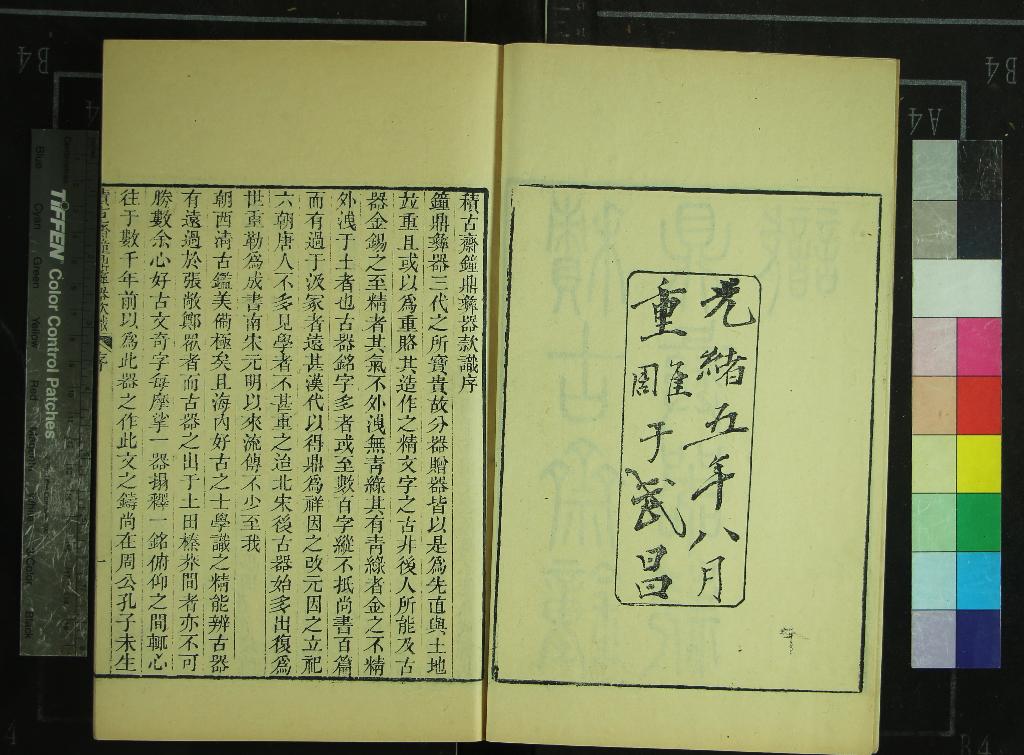 光緒五年八月
重雕于武昌
積古齋鐘鼎彝器款識序
鐘鼎彝器三代之所寶貴故分器贈器皆以是為先直與土地
並重且或以為重賂其造作之精文字之古非後人所能及古
器金錫之至精者其氣不外洩無青綠其有青綠者金之不精
外洩于土者也古器銘字多者或至數百字縱不抵尚書百篇
而有過于汲冢者遠甚漢代以得鼎為祥因之改元因之立祀
六朝唐人不多見學者不甚重之迨北宋後古器始多出復為
世重勒為成書南宋元明以來流傳不少至我
朝西清古鑑美備極矣且海內好古之士學識之精能辨古器
有遠過於張敞鄭眾者而古器之出于土田榛莽間者亦不可
勝數余心好古文奇字每摩挲一器搨釋一銘俯仰之間輒心
往于數千年前以為此器之作此文之鑄尚在周公孔子未生
序
一
TIFFEN Color Control Patches
Blue
Cyan
Green
Yellow
Red
Magenta
White
3/Color
Black
B4
B4
A4